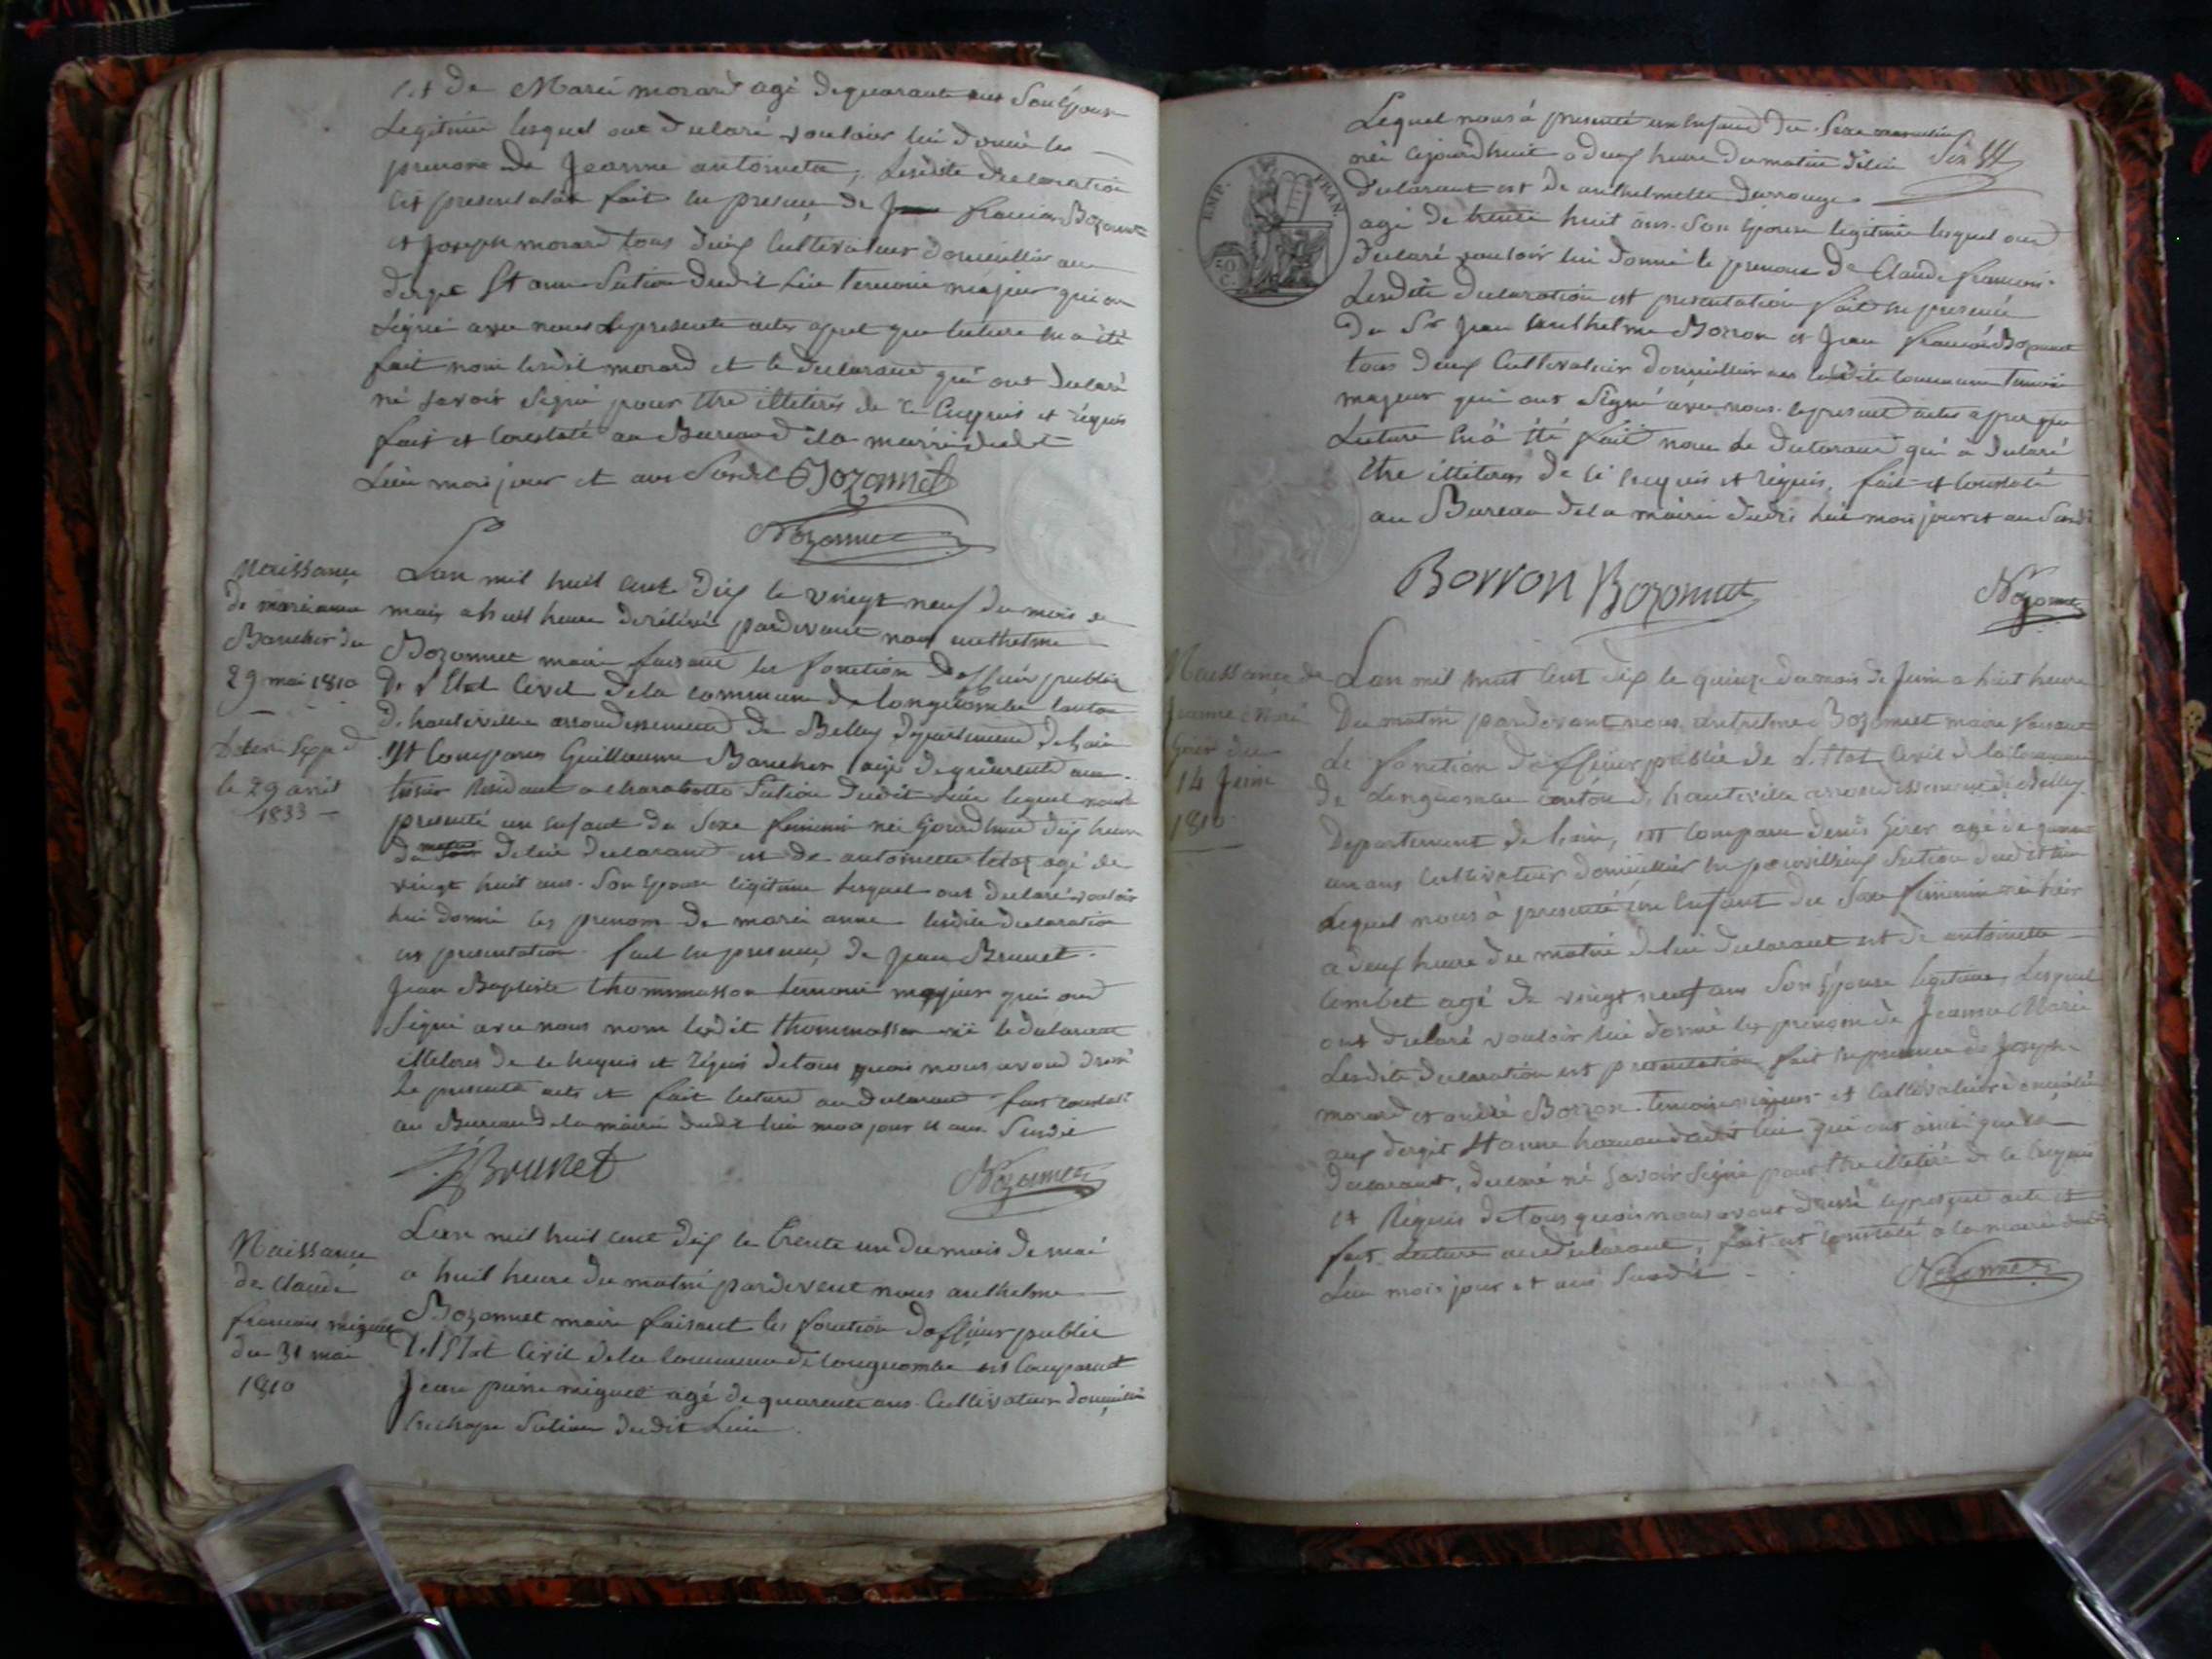 et de Marie morard agé de quarante ans Son Epouse
Legitime lesquel ont declaré vouloir lui donné les
prenom de Jeanne antoinette, Lesdite declaration
et presentation fait en presence de francois Bozonnet
et Joseph morard tous deux Cultivateur domicillier aux
dergit St anne Section dudit Lieu temoin majeur qui on
Signé avec nous le presente actes apret que lecture en a été
fait nom ledit morard et le declarant qui ont declaré
né savoir Signé pour être illeteres de ce enquis et réquis
fait et Constaté au Bureaud de la mairie dudit
Lieu mois jour et ans Susdit Bozonnet
Bozonnet
Naissance
de marianne
Bancher du
29 mai 1810
le 29 avril
1833
Lan mil huit cent dix le vingt neuf du mois de
mais a huit heure pardevant nous anthelme
Bozonnet maire faisant les fonction dofficier public
de l'Etat Civil dela commune de longecombe Canton
de hauteville arrondissement de Belley departement de lain
est Comparus Guillaume Bancher agé de quarente ans
résidant a charabotte Section dudit Lieu lequel nous
presenté un enfant du Sexe feminin née ajourdhui dix heure
du matin de lui declarant et de antoinette agé de
vingt huit ans Son Epouse légitime Lesquel ont declaré vouloir
lui donné les prenom de marie anne lesdite declaration
et presentation fait en presence de Jean Brunet
Jean Baptiste thommasson temoin majeur qui ont
Signé avec nous nom ledit thommasson le declarant
illeteres de ce enquis et réquis de tous quois nous avond dressé
Le presente acte et fait lecture au declarant fait constaté
au Bureau de la mairie dudit lieu mois jour et ans Susdit
Brunet
Bozonnet
Naissance
de Claude
francois miguet
du 31 mai
1810
Lan mil huit cent dix le trente un du mois de mai
a huit heure du matin pardevent nous anthelme
Bozonnet maire faisant les fonction dofficier public
de l'Etat Civil dela Commune de longecombe est Comparut
Jean pierre miguet agé de quarente ans Cultivateur domicillié
Section dudit Lieu
Lequel nous à presenté un Enfand du Sexe masculin
née ajourdhuit a deux heure du matin delui
declarant et de anthelmette Durrouge
EMP. FRAN.
50 C.
agé de trente huit ans Son Epouse legitime lesquel ond
declaré vouloir lui donné le prenom de Claude francois
Lesdite declaration est presentation fait en presence
du Sr Jean anthelme Borron et Jean francois Bozonnet
tous deux Cultivateur domicillier au ladite Commune temoin
majeur qui ont Signé avec nous le present actes apres que
Lecture en à été fait nom le declarant qui à declaré
être illiteres de ce enquis et réquis, fait et Constaté
au Bureau dela mairie dudit lieu mois jour et an Susdit
Borron Bozonnet
Bozonnet
Naissance de
Jeanne Marie
Girer du
14 Juin
1810
Lan mil huit Cent dix le quinze du mois de Juin a huit heure
Du matin pardevant nous anthelme Bozonnet maire faisant
Le fonction d'officier public de L'Etat Civil de la Commune
de Longecombe canton de hauteville arrondissement de Belley
Departement de lain, est Comparu denis Girer agé de quarante
un ans Cultivateur domicillier Section dudit lieu
Lequel nous à presenté un Enfant du Sexe feminin née hier
a deux heure du matin de lui declarant et de antoinette
Combet agé de vingt neuf ans Son Epouse legitime, Lesquel
ont declaré vouloir lui donné les prenom de Jeanne Marie
Lesdite declaration est presentation fait en presence de Joseph
morard et andré Borron temoin majeur et Cultivateur domicilié
aux dergit St anne hameau dudit lieu qui ont ainsi que le
declarant, declaré né Savoir Signé pour être illeteré de ce enquis
et Réquis de tous quois nous avons dressé le present acte et
fait Lecture au declarant, fait et Constaté a la mairie dudit
Lieu mois jour et ans Susdit
Bozonnet